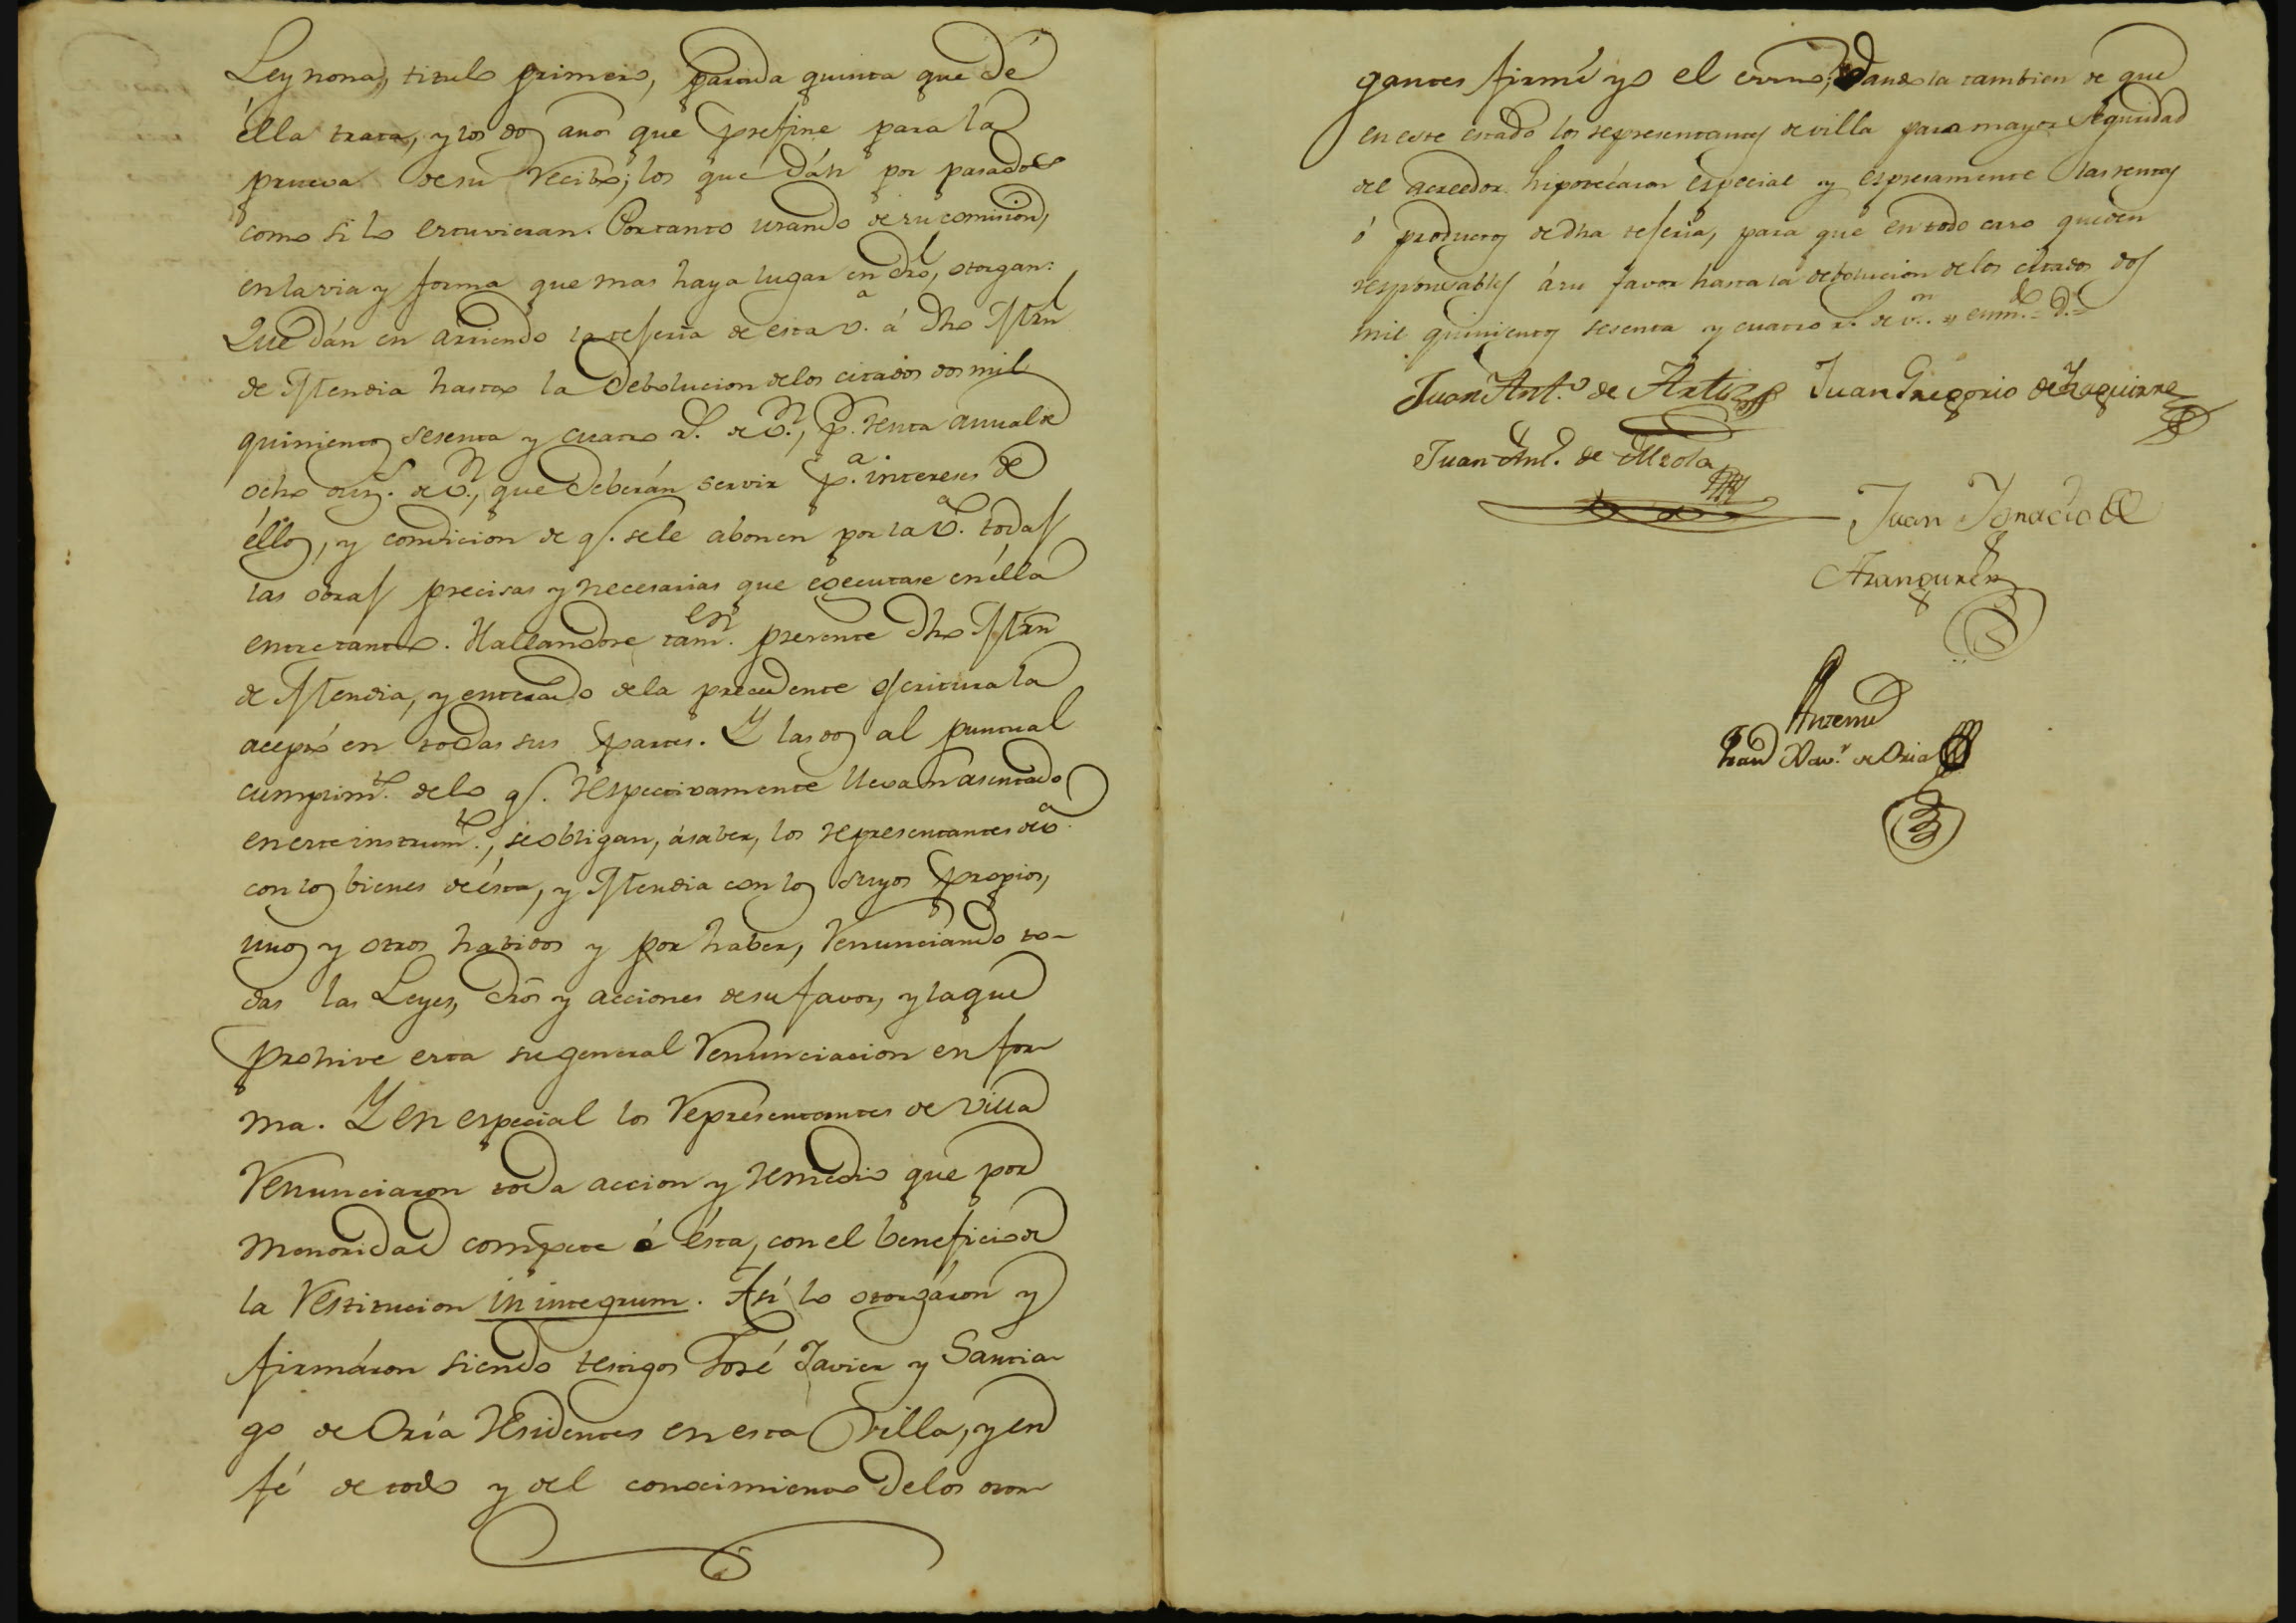 Ley nona, titulo primero, partida quinta que de
ella trata, y los dos anos que prefine para la
prueva de su recibo; los que dán por pasados
como si lo estuvieran. Portanto usando de su comision,
en la via y forma que mas haya lugar en dro, otorgan:
Que dán en arriendo la tejeria de esta v.a á dho Mrn
de Mendia hasta la debolucion delos citados dos mil
quinientos sesenta y cuatro r.s de v.n, p.r renta anual de
ocho duc.s de v.n, que deberán servir p.a intereses de
éllos, y condicion de q.e sele abonen por la v.a todas
las obras precisas y necesarias que egecutase en élla
entretanto. Hallandose tam.en presente dho Mrn
de Mendia, y enterado dela precedente escritura la
aceptó en todas sus partes. Y las dos al puntual
cumplim.to delo q.e respectivamente llevan asentado
en este instrum.to, se obligan, ásaber, los representantes de v.a
con los bienes de ésta, y Mendia con los suyos propios,
unos y otros habidos y por haber, renunciando to-
das las Leyes, dros y acciones de su favor, y la que
prohive esta su general renunciacion en for-
ma. Y en especial los representantes de villa
renunciaron toda accion y remedio que por
menoridad compete á ésta, con el beneficio de
la restitucion in integrum. Así lo otorgáron y
firmáron siendo testigos José Javier y Santia-
go de Oria residentes en esta villa, y en
fé de todo y del conocimiento delos otor-
gantes firmé yo el esno; dandola tambien de que
en este estado los representantes de villa para mayor seguridad
del acreedor hipotecáron especial y espresamente las rentas
ó productos de dha tejeria, para que en todo caso queden
responsables ásu favor hasta la debolucion de los citados dos
mil quinientos sesenta y cuatro r.s de v.n = enm.do = d. =
Juan Ant.o de Juan Gregorio de Yzaguirre
Juan Ant.o de
Juan Ygnacio de
Aranguren
Antemi
Xav.r de Oria